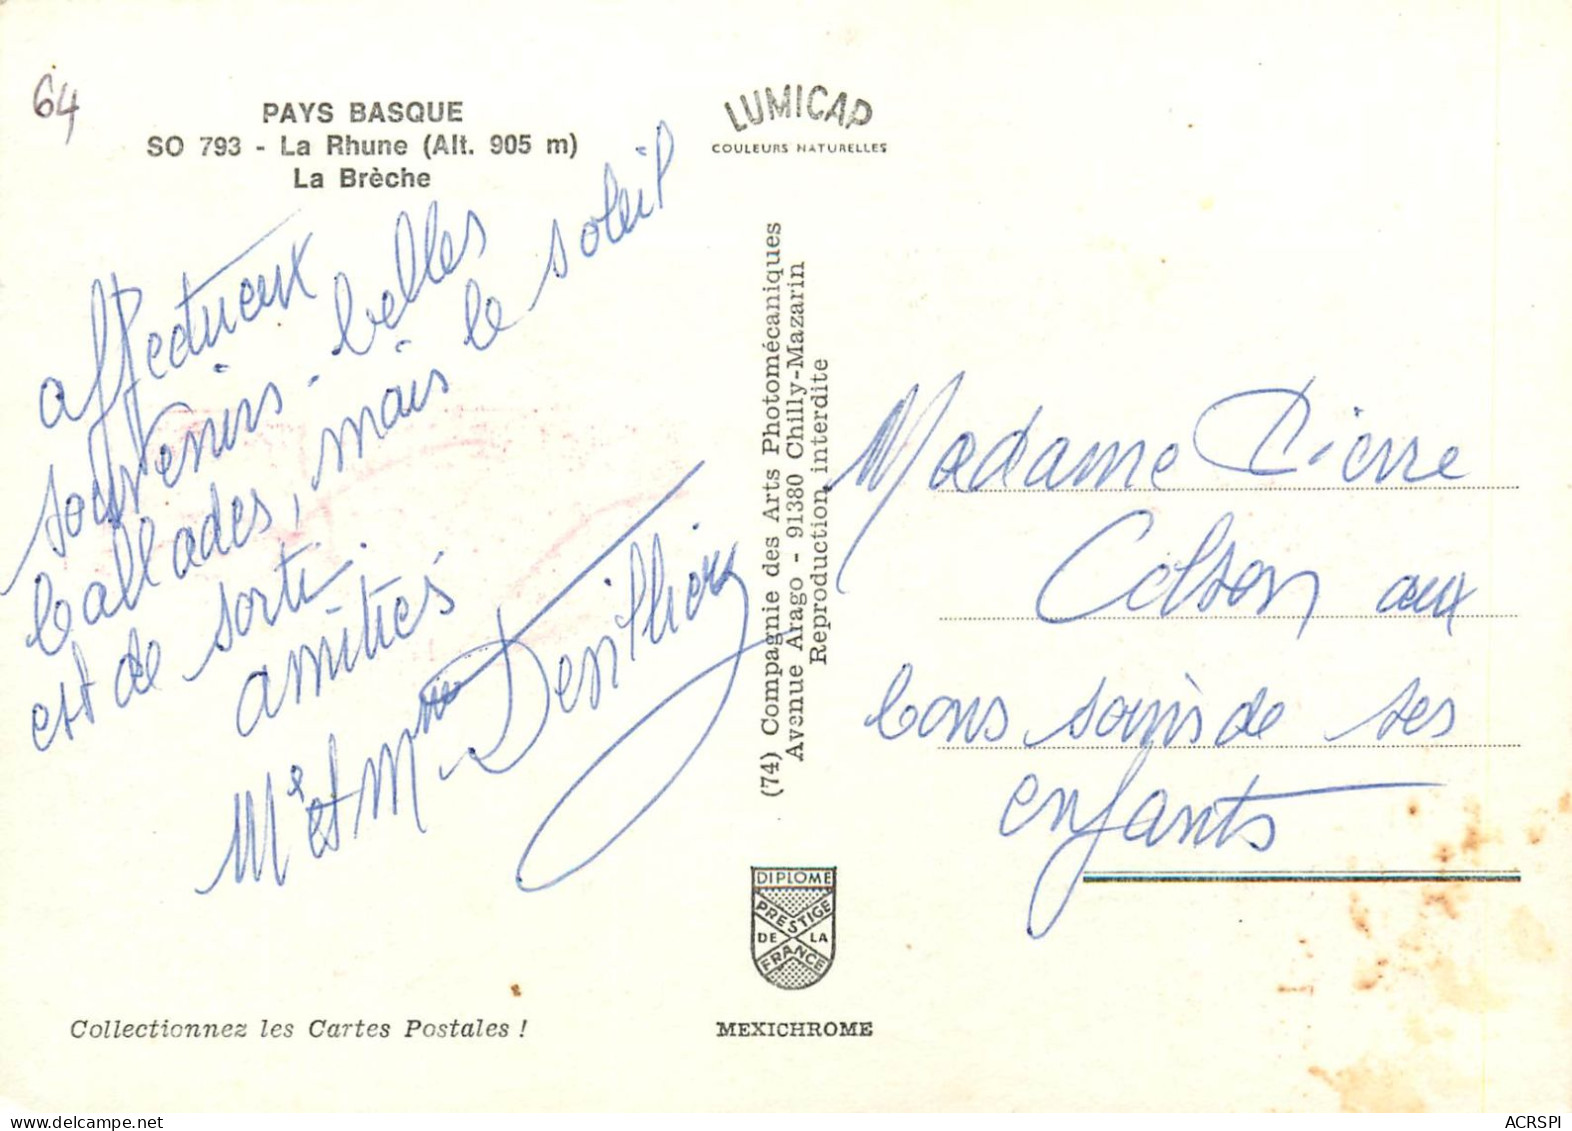 64
PAYS BASQUE
SO 793 - La Rhune (Alt. 905 m)
La Brèche
affectueux
souvenirs. belles
ballades, mais le soleil
est de sorti.
amitiés
Mr et Mme
LUMICAP
COULEURS NATURELLES
(74) Compagnie des Arts Photomécaniques
Avenue Arago - 91380 Chilly-Mazarin
Reproduction interdite
Madame Pierre
Colson aux
bons soins de ses
enfants
DIPLOME
PRESTIGE
DE LA
FRANCE
Collectionnez les Cartes Postales !
MEXICHROME
ACRSPI